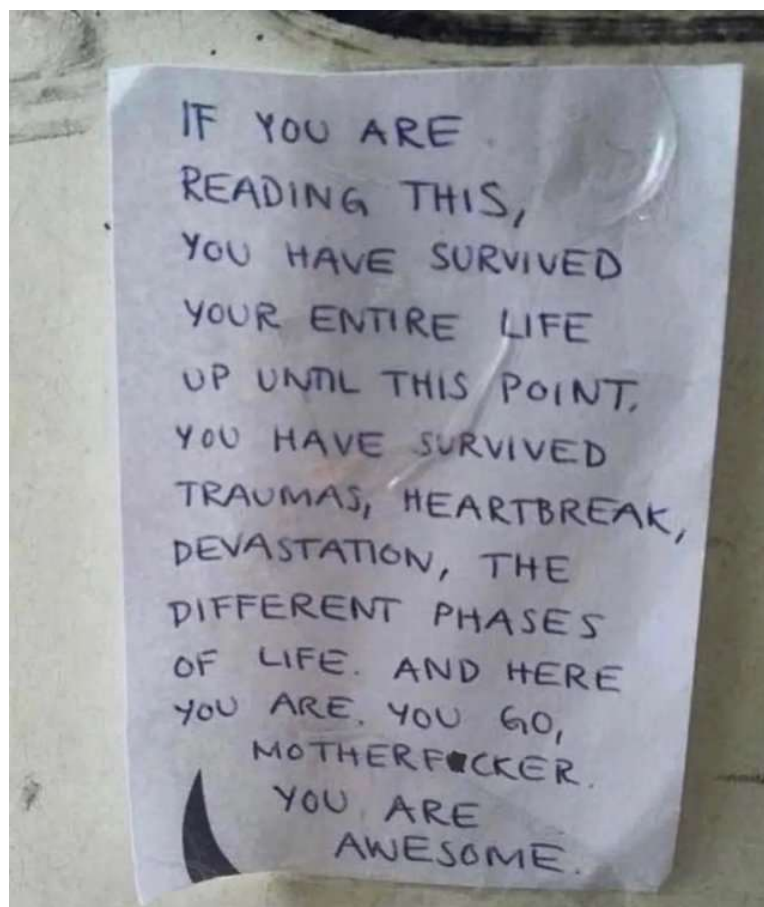 IF YOU ARE
READING THIS,
YOU HAVE SURVIVED
YOUR ENTIRE LIFE
UP UNTIL THIS POINT.
YOU HAVE SURVIVED
TRAUMAS, HEARTBREAK,
DEVASTATION, THE
DIFFERENT PHASES
OF LIFE. AND HERE
YOU ARE. YOU GO,
MOTHERF*CKER.
YOU ARE
AWESOME.